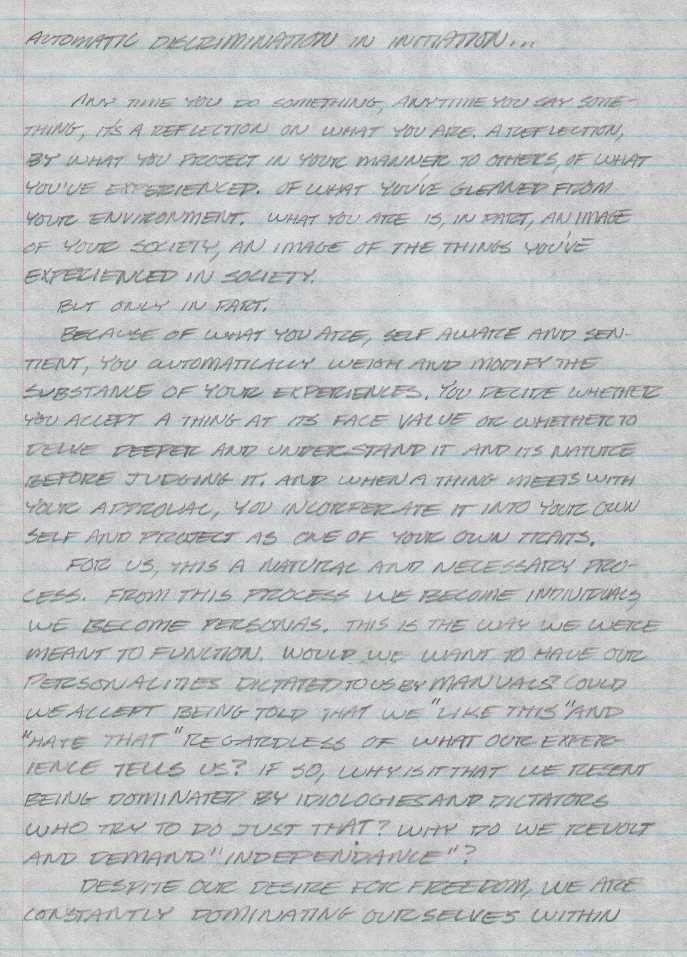 AUTOMATIC DISCRIMINATION IN INITIATION...
ANY TIME YOU DO SOMETHING, ANYTIME YOU SAY SOME-
THING, IT'S A REFLECTION ON WHAT YOU ARE. A REFLECTION,
BY WHAT YOU PROJECT IN YOUR MANNER TO OTHERS, OF WHAT
YOU'VE EXPERIENCED. OF WHAT YOU'VE GLEANED FROM
YOUR ENVIRONMENT. WHAT YOU ARE IS, IN PART, AN IMAGE
OF YOUR SOCIETY, AN IMAGE OF THE THINGS YOU'VE
EXPERIENCED IN SOCIETY.
BUT ONLY IN PART.
BECAUSE OF WHAT YOU ARE, SELF AWARE AND SEN-
TIENT, YOU AUTOMATICALLY WEIGH AND MODIFY THE
SUBSTANCE OF YOUR EXPERIENCES. YOU DECIDE WHETHER
YOU ACCEPT A THING AT ITS FACE VALUE OR WHETHER TO
DELVE DEEPER AND UNDERSTAND IT AND ITS NATURE
BEFORE JUDGING IT. AND WHEN A THING MEETS WITH
YOUR APPROVAL, YOU INCORPERATE IT INTO YOUR OWN
SELF AND PROJECT AS ONE OF YOUR OWN TRAITS.
FOR US, THIS A NATURAL AND NECESSARY PRO-
CESS. FROM THIS PROCESS WE BECOME INDIVIDUALS,
WE BECOME PERSONAS. THIS IS THE WAY WE WERE
MEANT TO FUNCTION. WOULD WE WANT TO HAVE OUR
PERSONALITIES DICTATED TO US BY MANUALS? COULD
WE ACCEPT BEING TOLD THAT WE "LIKE THIS" AND
"HATE THAT" REGARDLESS OF WHAT OUR EXPER-
IENCE TELLS US? IF SO, WHY IS IT THAT WE RESENT
BEING DOMINATED BY IDIOLOGIES AND DICTATORS
WHO TRY TO DO JUST THAT? WHY DO WE REVOLT
AND DEMAND "INDEPENDANCE"?
DESPITE OUR DESIRE FOR FREEDOM, WE ARE
CONSTANTLY DOMINATING OURSELVES WITHIN